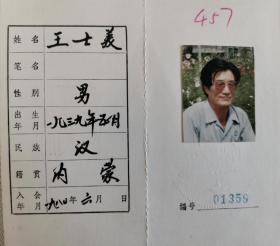 姓名 王士美
笔名
性别 男
出生年月 一九三九年五月
民族 汉
籍贯 内蒙
入会年月 一九八〇年六月 日
457
编号 01359